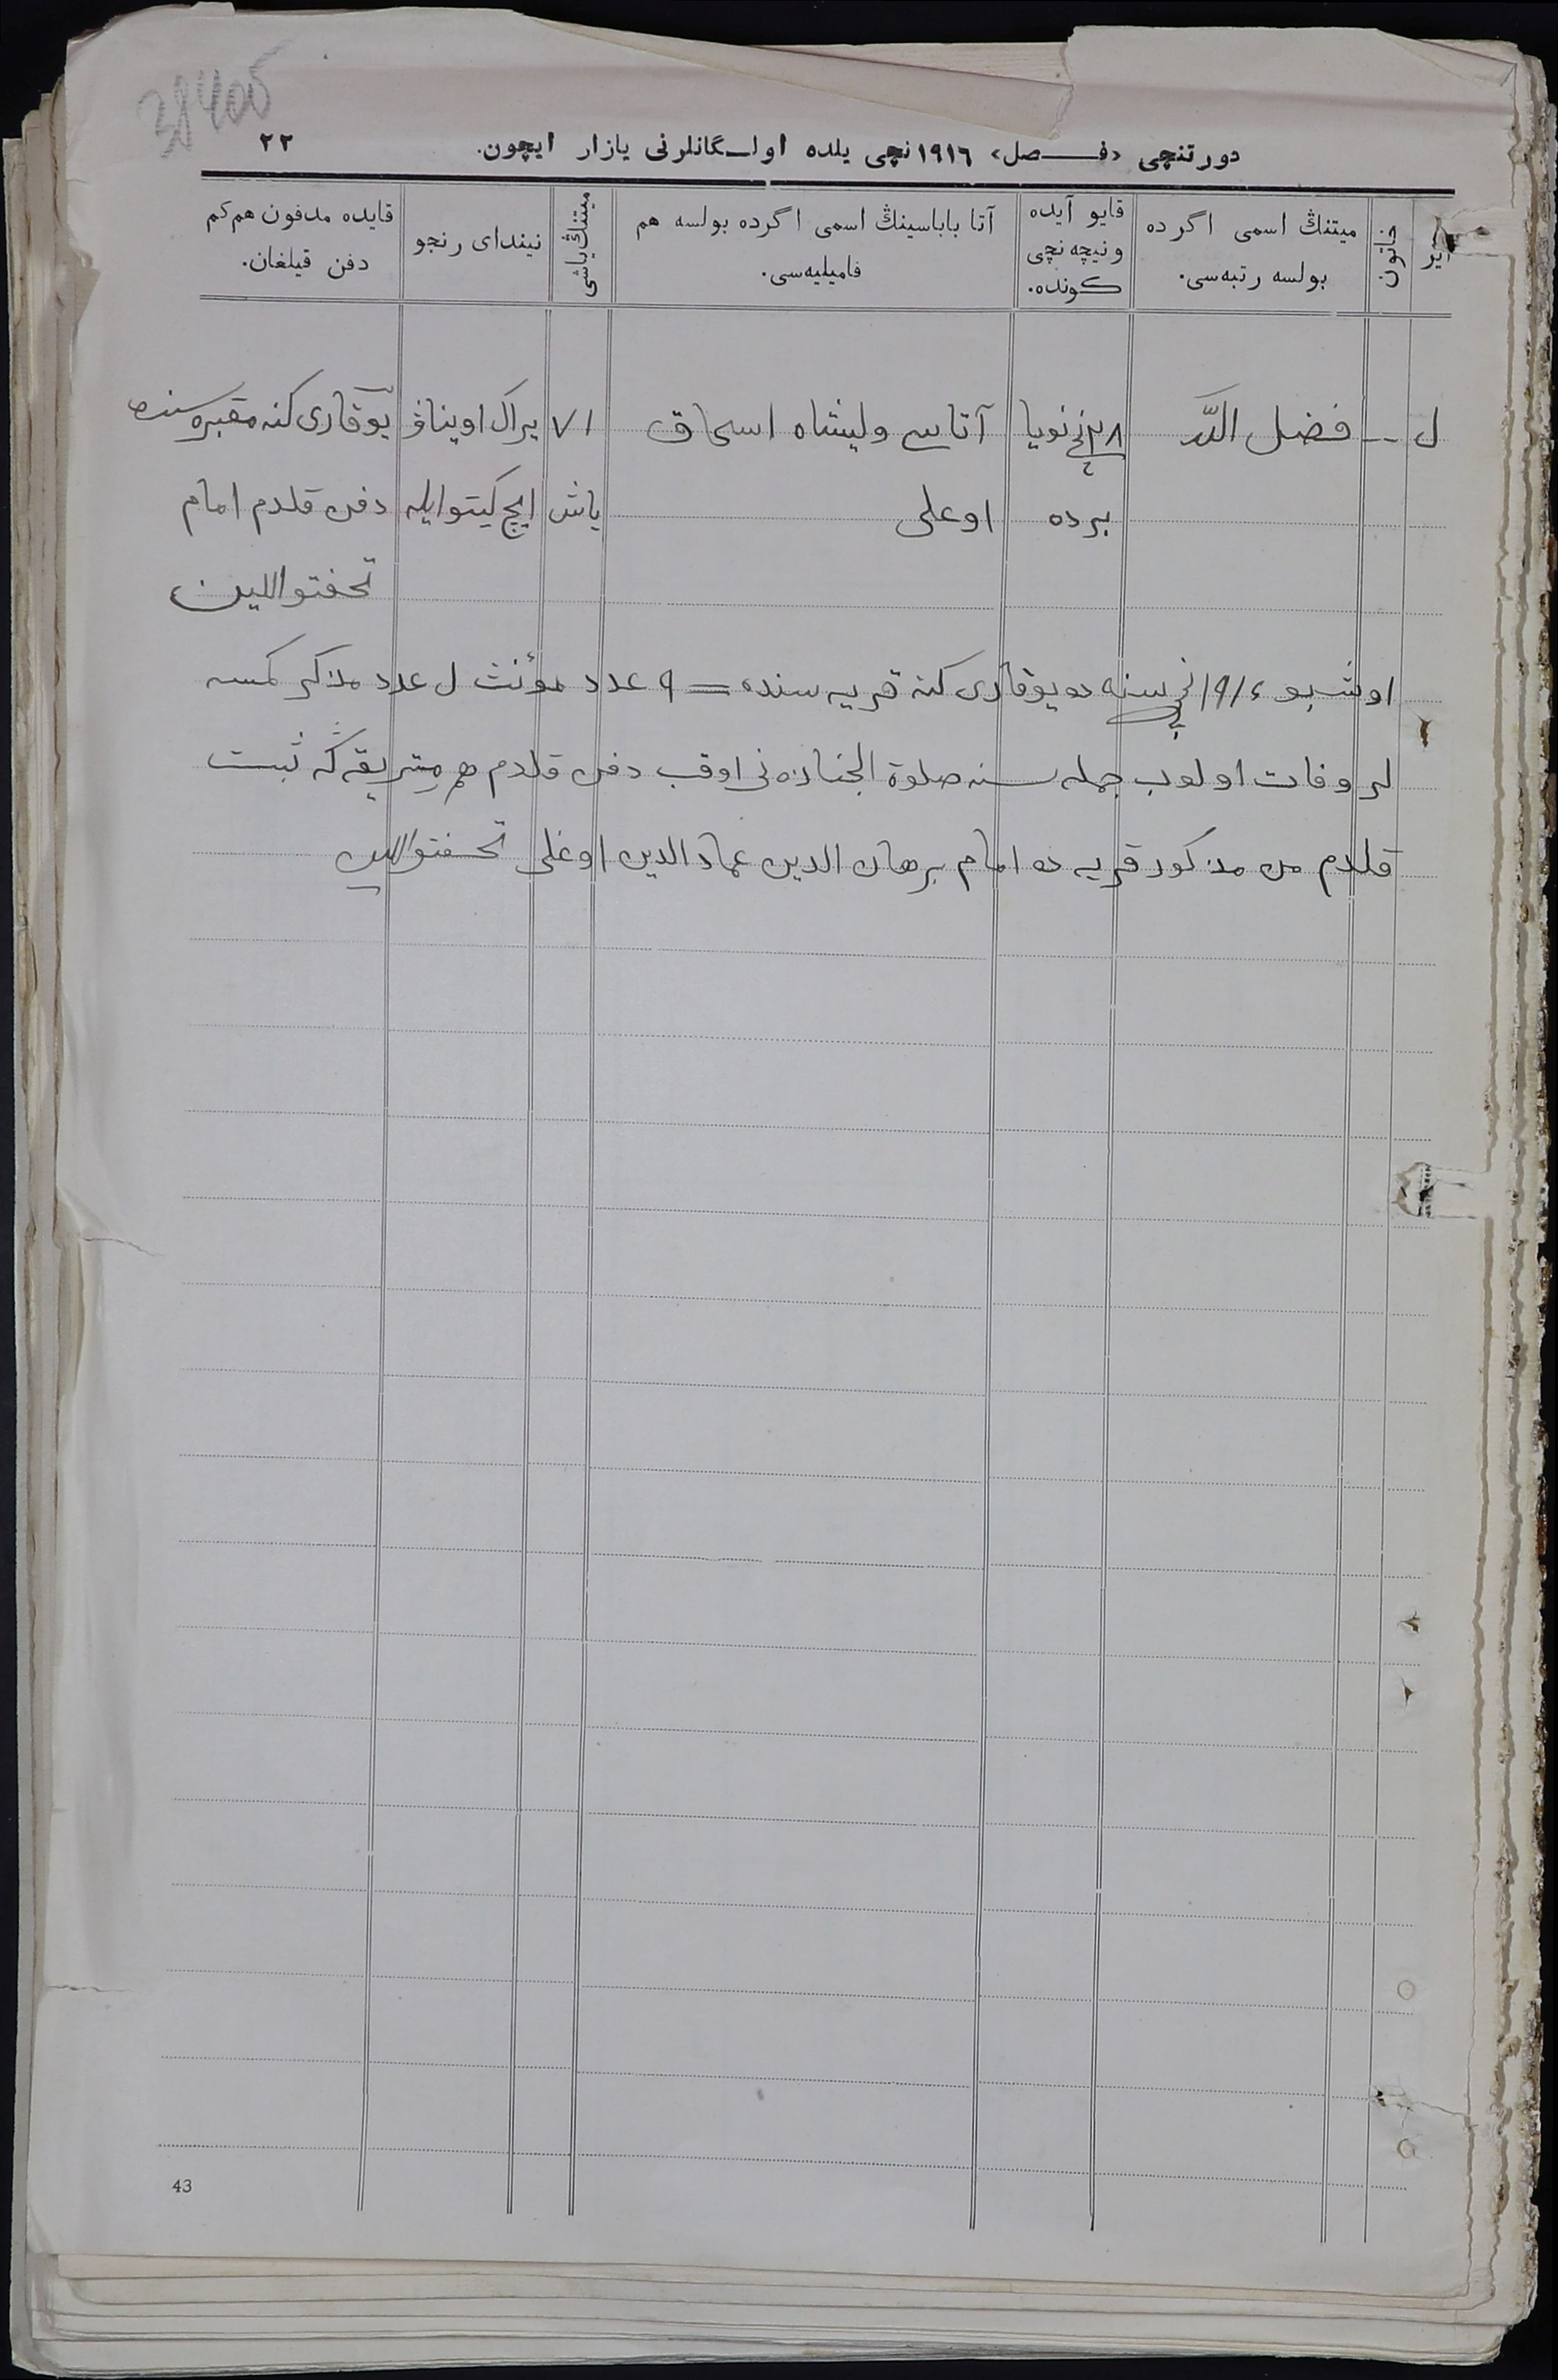 38400
دورتنچی «فصل» ١٩١٦نچی یلده اولـگانلرنی یازار ایچون. ٢٢
ایر
خاتون
میتنڭ اسمی اگرده بولسه رتبه‌سی.
قایو آیده ونیچه نچی كونده.
آتا باباسینڭ اسمی اگرده بولسه هم فامیلیه‌سی.
میتنڭ یاشی
نیندای رنجو
قایده مدفون هم کم دفن قیلغان.
فضل الله ٢٨ نچی نویا آتاسی ولیشاه اسحاق ٧١ یراك اویناو یوقاری کنه مقبره سنده
برده اوغلی یاش ایچ کیتو ایله دفن قلدم امام
اوشبو ١٩١٦ نچی سنه ده یوقاری کنه قریه سنده = ٩ عدد مؤنث ل عدد مذکر کمسه
لر وفات اولوب جمله سنه صلوة الجنازه نی اوقب دفن قلدم هم میتریقه گه ثبت
قلدم من مذکور قریه ده امام برهان الدین عماد الدین اوغلی
43